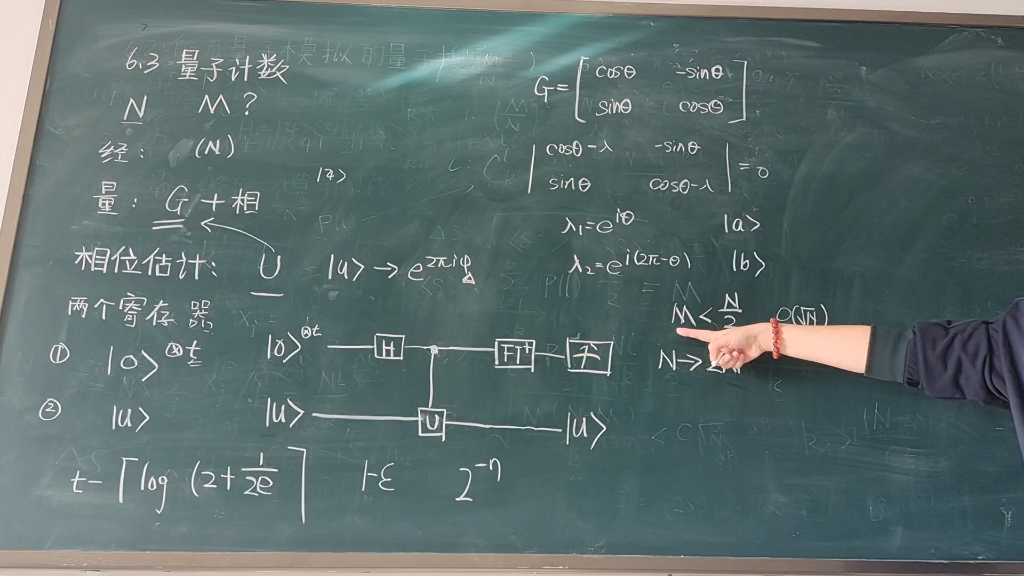 6.3 量子计数
N M?
经: (N)
|4>
量: G+相
相位估计: U |u> → e^{2πiφ}
两个寄存器
① |0>^{⊗t}
② |u>
|0>^{⊗t} H FT^+
|u> U |u>
t-⌈log (2+\frac{1}{2e}⌉ 1-ε 2^{-n}
G=[cosθ -sinθ
sinθ cosθ]
|cosθ-λ -sinθ
sinθ cosθ-λ|=0
λ₁=e^{iθ} |a>
λ₂=e^{i(2π-θ)} |b>
M<\frac{N}{2} O(√N)
N→